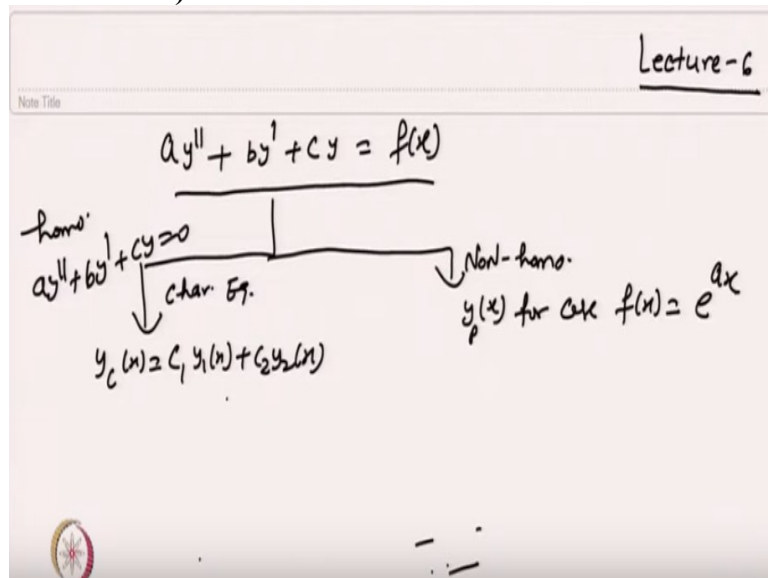 Lecture-6
Note Title
ay'' + by' + cy = f(x)
homo.
ay'' + by' + cy = 0
Char. Eq.
y_c(x) = C_1 y_1(x) + C_2 y_2(x)
Non-homo.
y_p(x) for case f(x) = e^{ax}